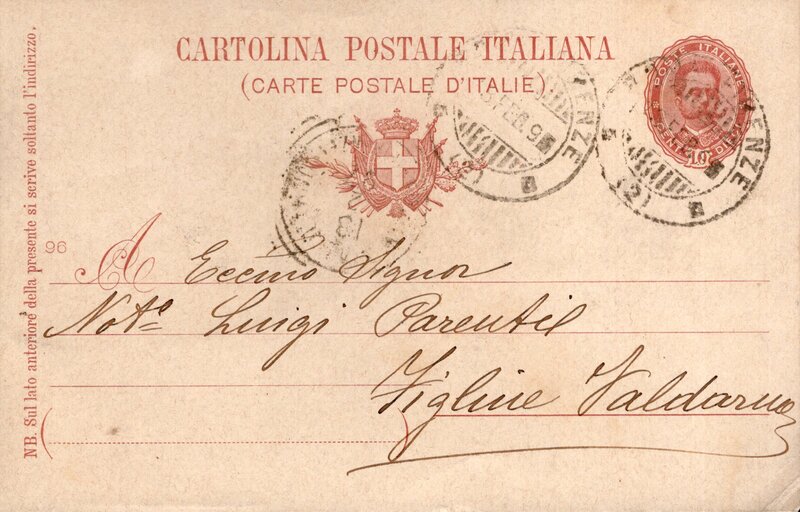 CARTOLINA POSTALE ITALIANA
(CARTE POSTALE D'ITALIE)
POSTE ITALIANE
10
FEB 9
(2)
ENZE
(2)
96
NB. Sul lato anteriore della presente si scrive soltanto l'indirizzo.
A Eccmo Signor
Noto Luigi Parentil
Figline Valdarno